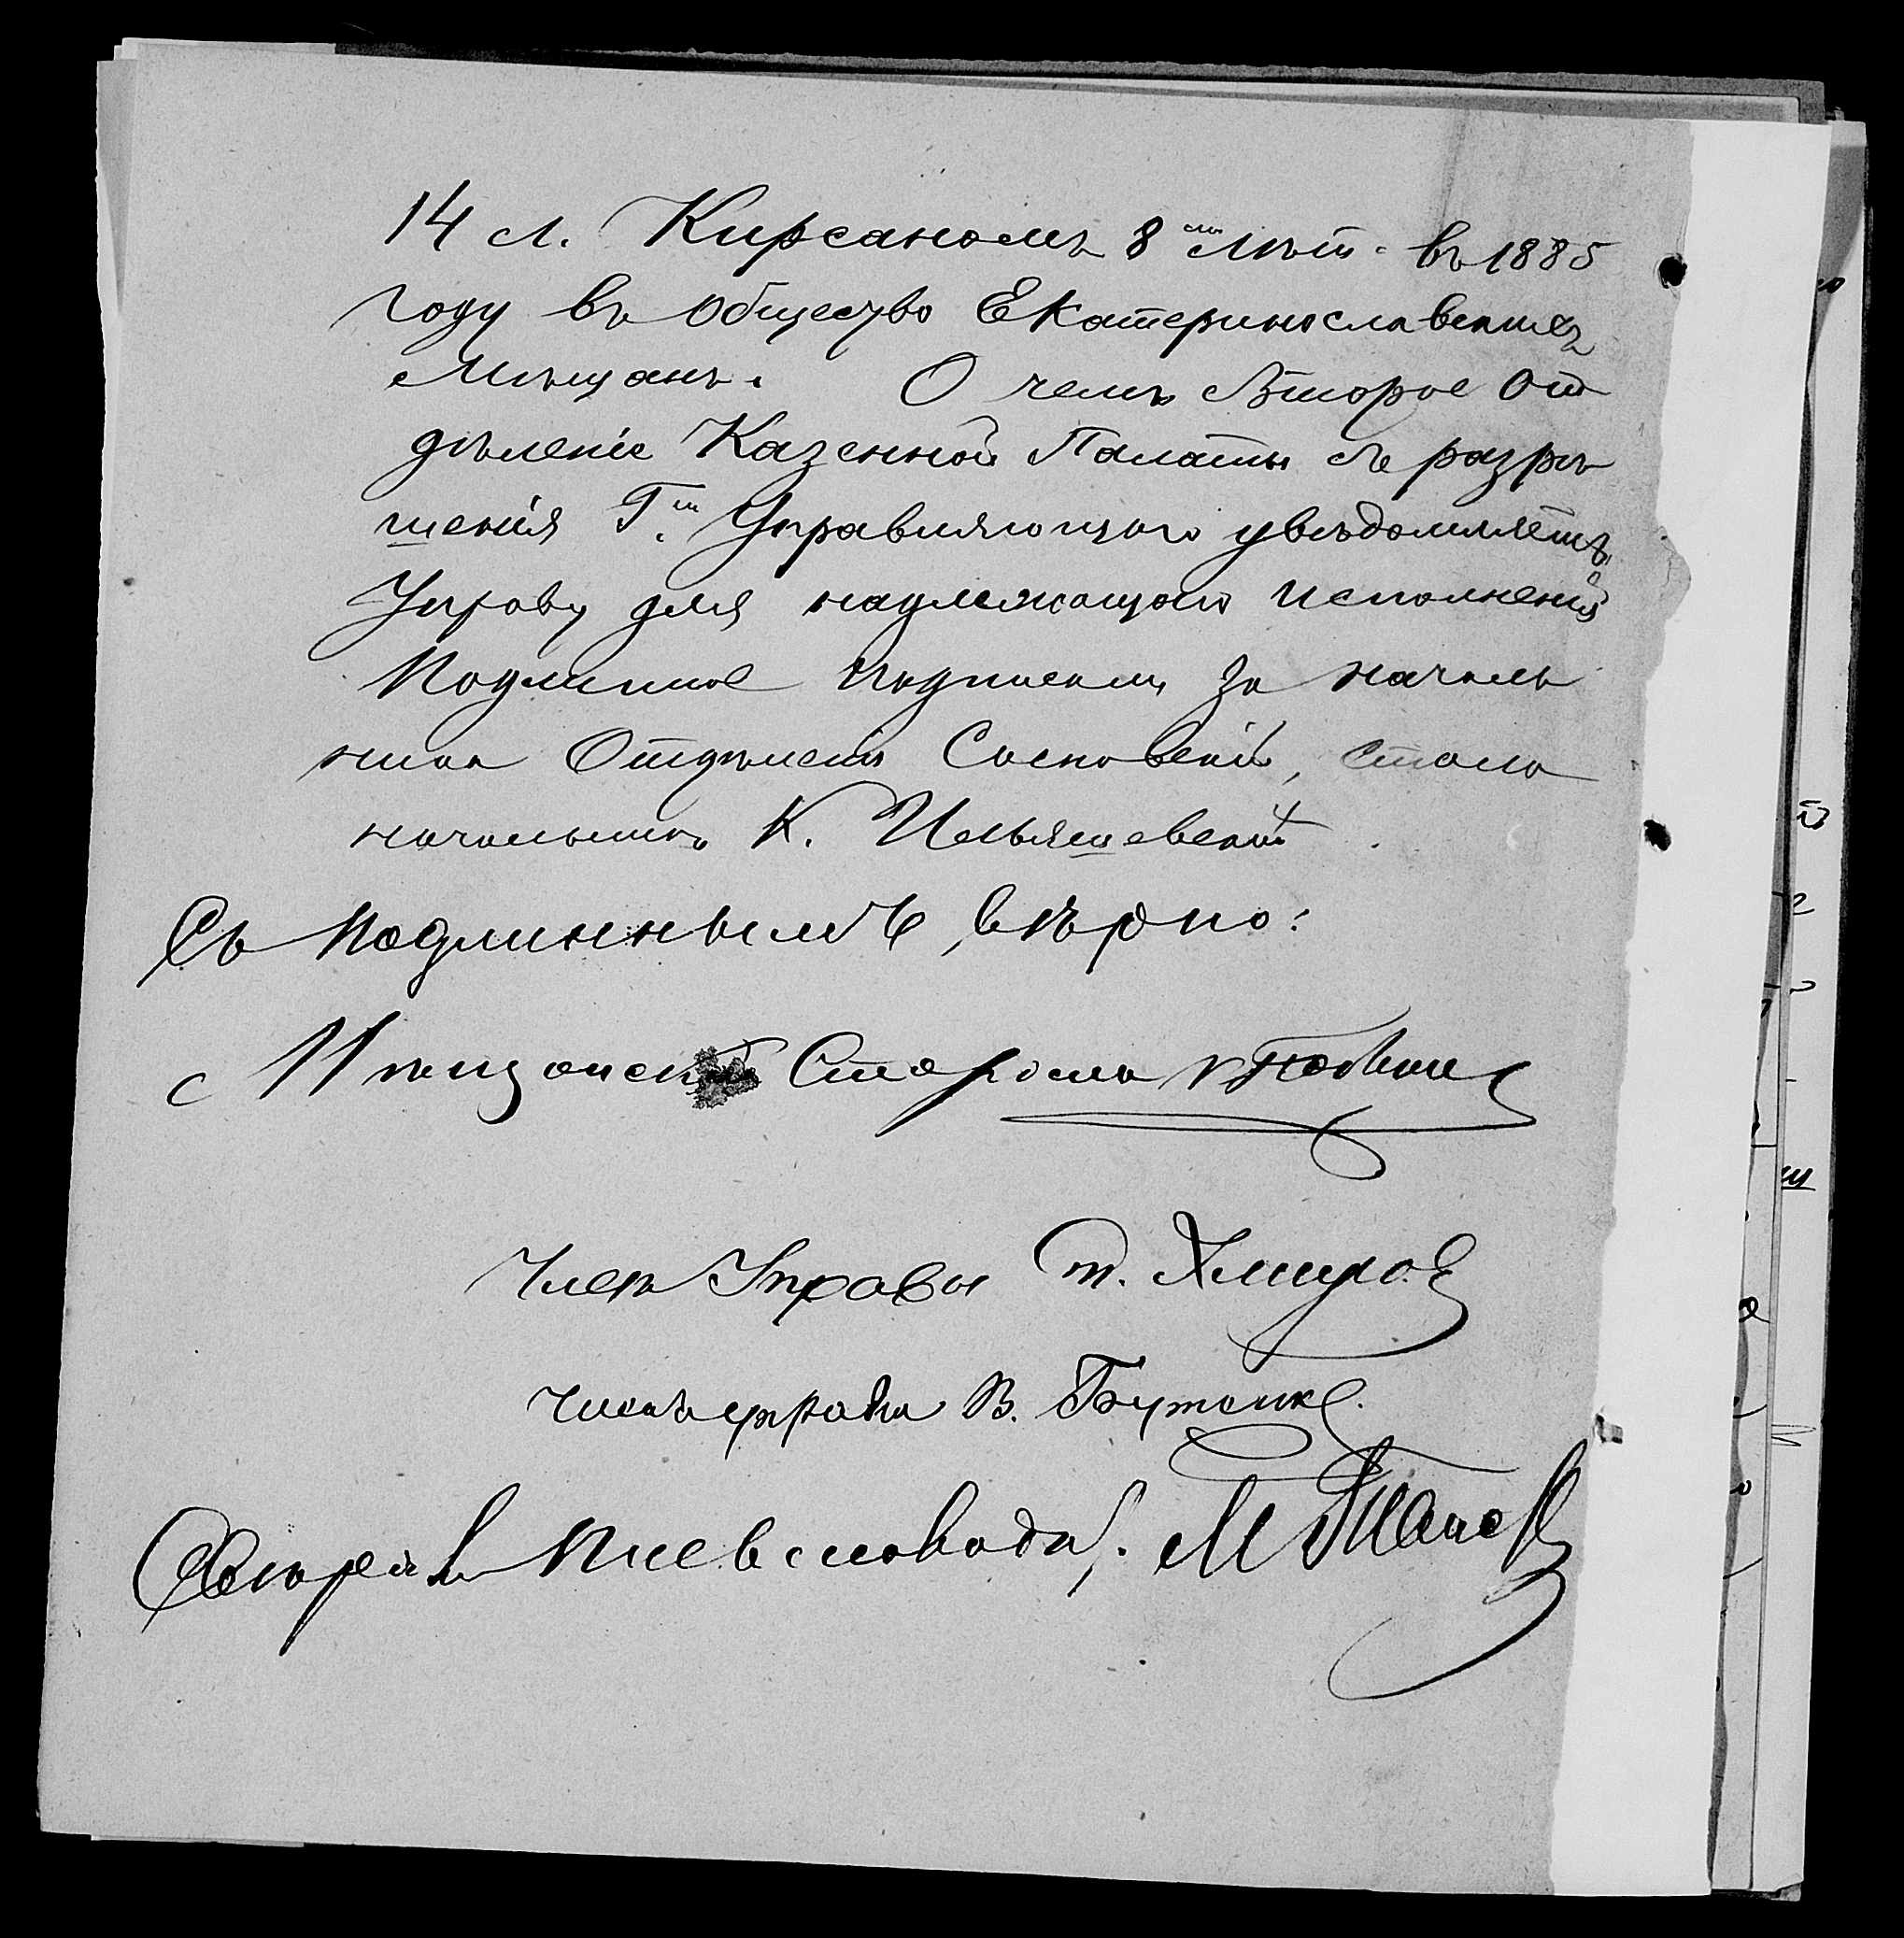 14 л. Кирсаномъ 8ми лѣт. въ 1885
году въ Общество Екатеринославскихъ
Мѣщанъ. О чемъ Второе От
дѣленіе Казенной Палаты съ разрѣ
шенія Гна Управляющаго увѣдомляетъ
Управу для надлежащаго исполненія
Подлинное подписали за началь
ника Отдѣленія Сосновскій, Столо
начальникъ К. Ильяшевскій
Съ подлиннымъ вѣрно:
Мѣщанскій Староста
Членъ Управы Т. Хмыров
Членъ управы В. Бутенко.
Секретарь М